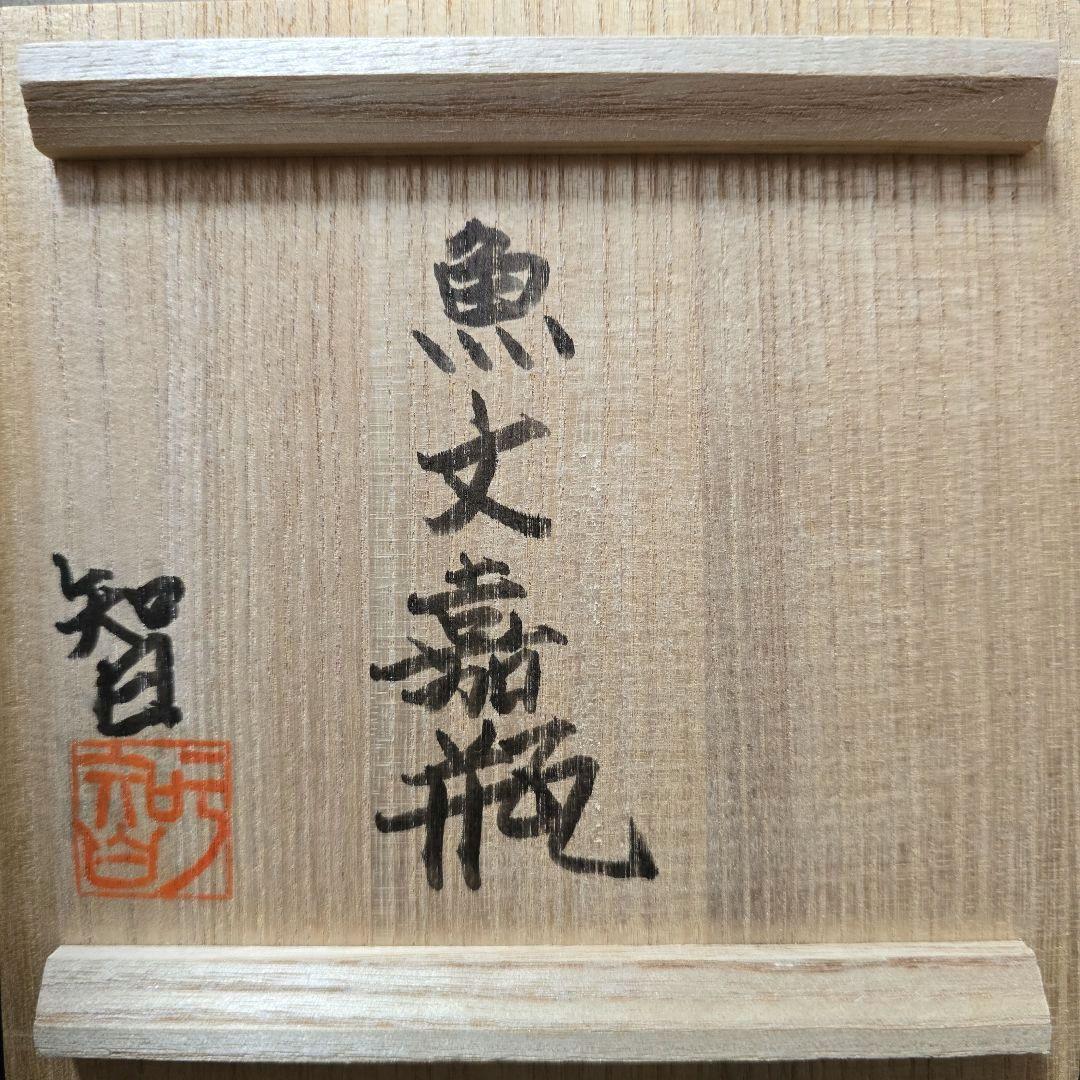 魚文嘉瓶
智